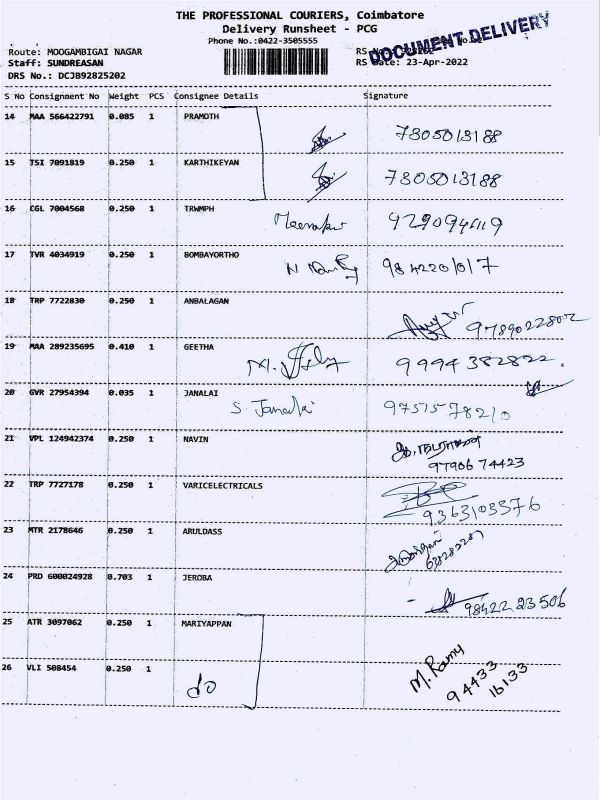 THE PROFESSIONAL COURIERS, Coimbatore
Delivery Runsheet - PCG
Phone No.:0422-3505555
DOCUMENT DELIVERY
Route: MOOGAMBIGAI NAGAR
Staff: SUNDREASAN
RS Date: 23-Apr-2022
DRS No.: DCJB92825202
S No Consignment No Weight PCS Consignee Details Signature
14 MAA 566422791 0.085 1 PRAMOTH 7305013188
15 TSI 7091819 0.250 1 KARTHIKEYAN 7305013188
16 CGL 7004568 0.250 1 TRWMPH
17 TVR 4034919 0.250 1 BOMBAYORTHO 9842201017
18 TRP 7722830 0.250 1 ANBALAGAN 9789022802
19 MAA 289235695 0.410 1 GEETHA 9994382822.
20 GVR 27954394 0.035 1 JANALAI S. Janalai 9751578210
21 VPL 124942374 0.250 1 NAVIN
97906 74423
22 TRP 7727178 0.250 1 VARICELECTRICALS
9363103376
23 MTR 2178646 0.250 1 ARULDASS
24 PRD 600024928 0.703 1 JEROBA
98422 23506
25 ATR 3097062 0.250 1 MARIYAPPAN
26 VLI 508454 0.250 1 do M. Ramy
94433
16133